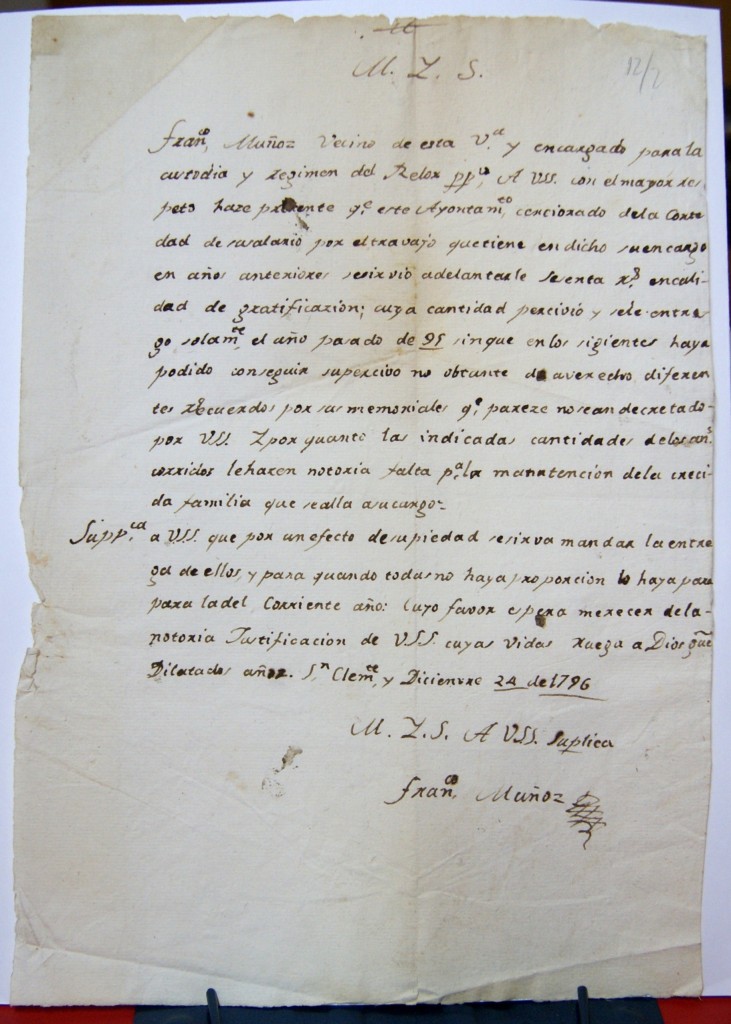 M. Y. S.
12/2
Fran.co Muñoz Vecino de esta V.a y encargado para la
custodia y regimen del Relox pp.co, A VSS. con el mayor res
peto haze presente q.e este Ayontam.to, concionado dela Corte
dad de su salario por el travajo que tiene en dicho su encargo
en años anteriores se sirvió adelantarle sesenta r.s en cali
dad de gratificazion; cuya cantidad percivió y sele entre
go solam.te el año pasado de 95 sin que en los sigientes haya
podido conseguir su percivo no obtante de aver echo diferen
tes recuerdos por sus memoriales q.e pareze no sean decretado
por VSS. Y por quanto las indicadas cantidades de los an.s
corridos le hazen notoria falta p.a la manutencion dela creci
da familia que se alla a su cargo=
Supp.ca a VSS. que por un efecto de su piedad se sirva mandar la entre
ga de ellos, y para quando todas no haya proporcion lo haya para
para la del Corriente año: Cuyo favor espera merecer dela
notoria Justificacion de VSS. cuyas Vidas ruega a Dios gu.e
Dilatados años. S.n Clem.te, y Diciembre 24 de 1796
M. Y. S. A VSS. suplica
Fran.co Muñoz